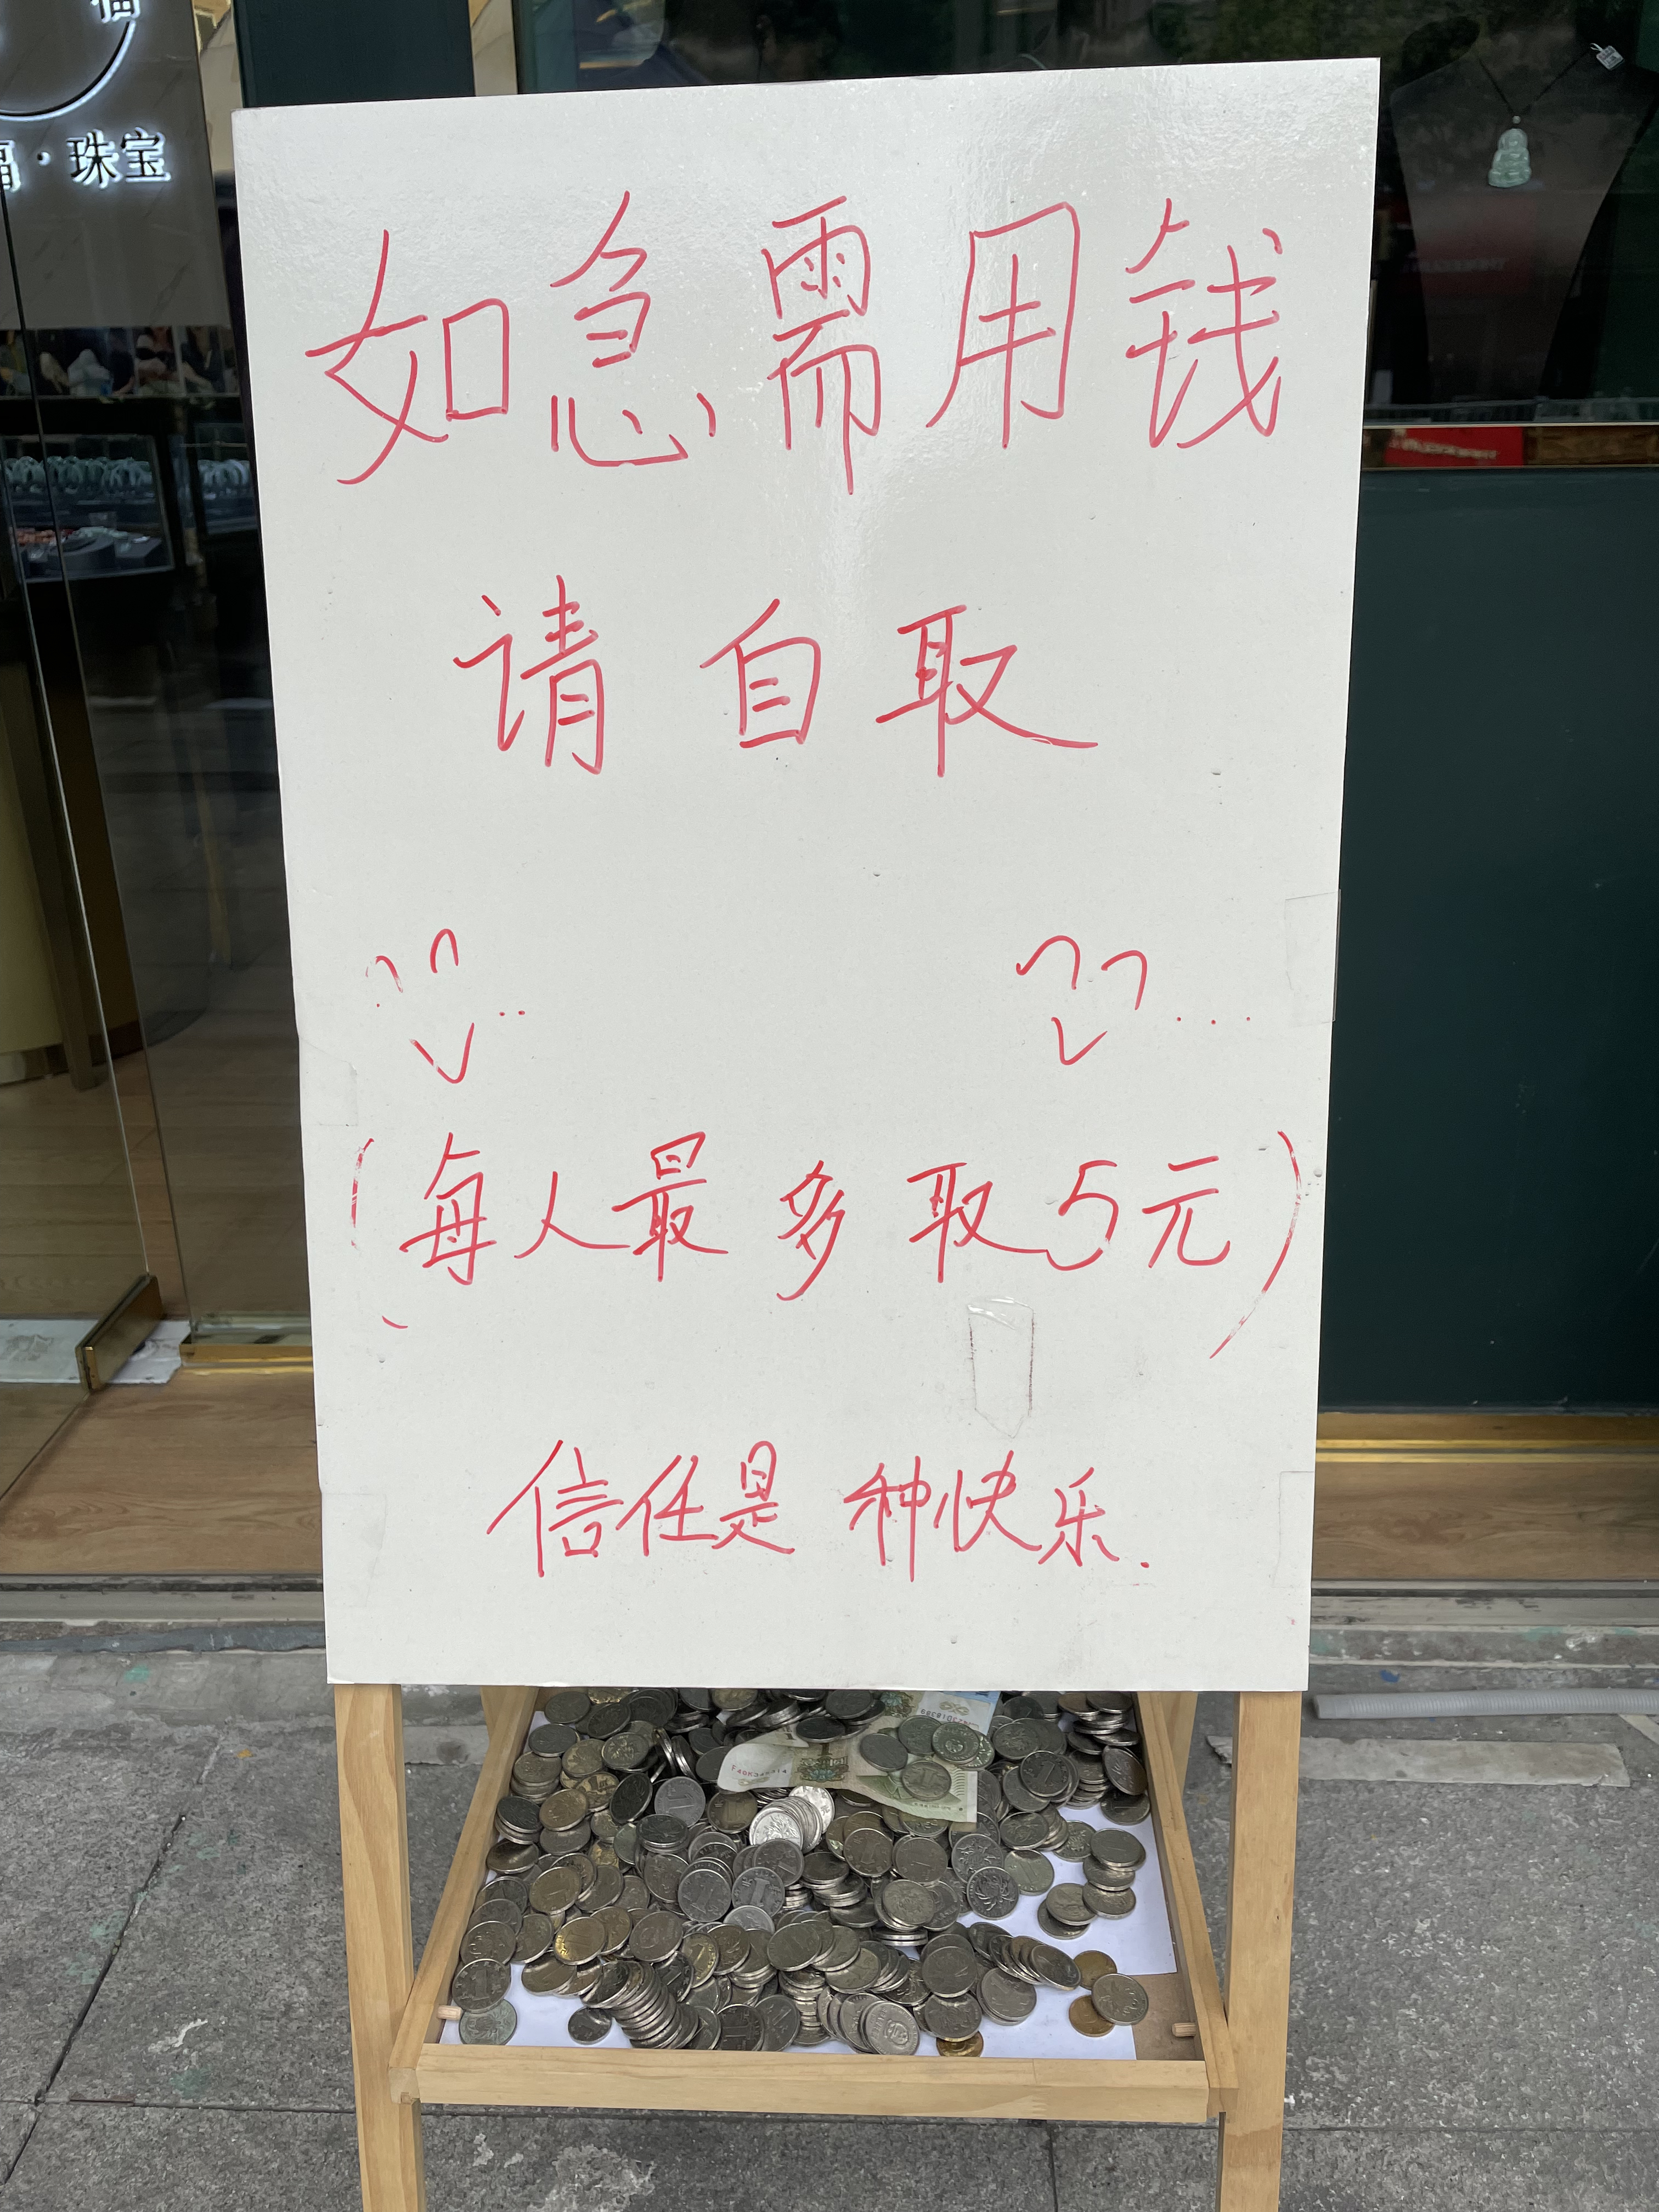 福
福·珠宝
如急需用钱
请自取
(每人最多取5元)
信任是种快乐.